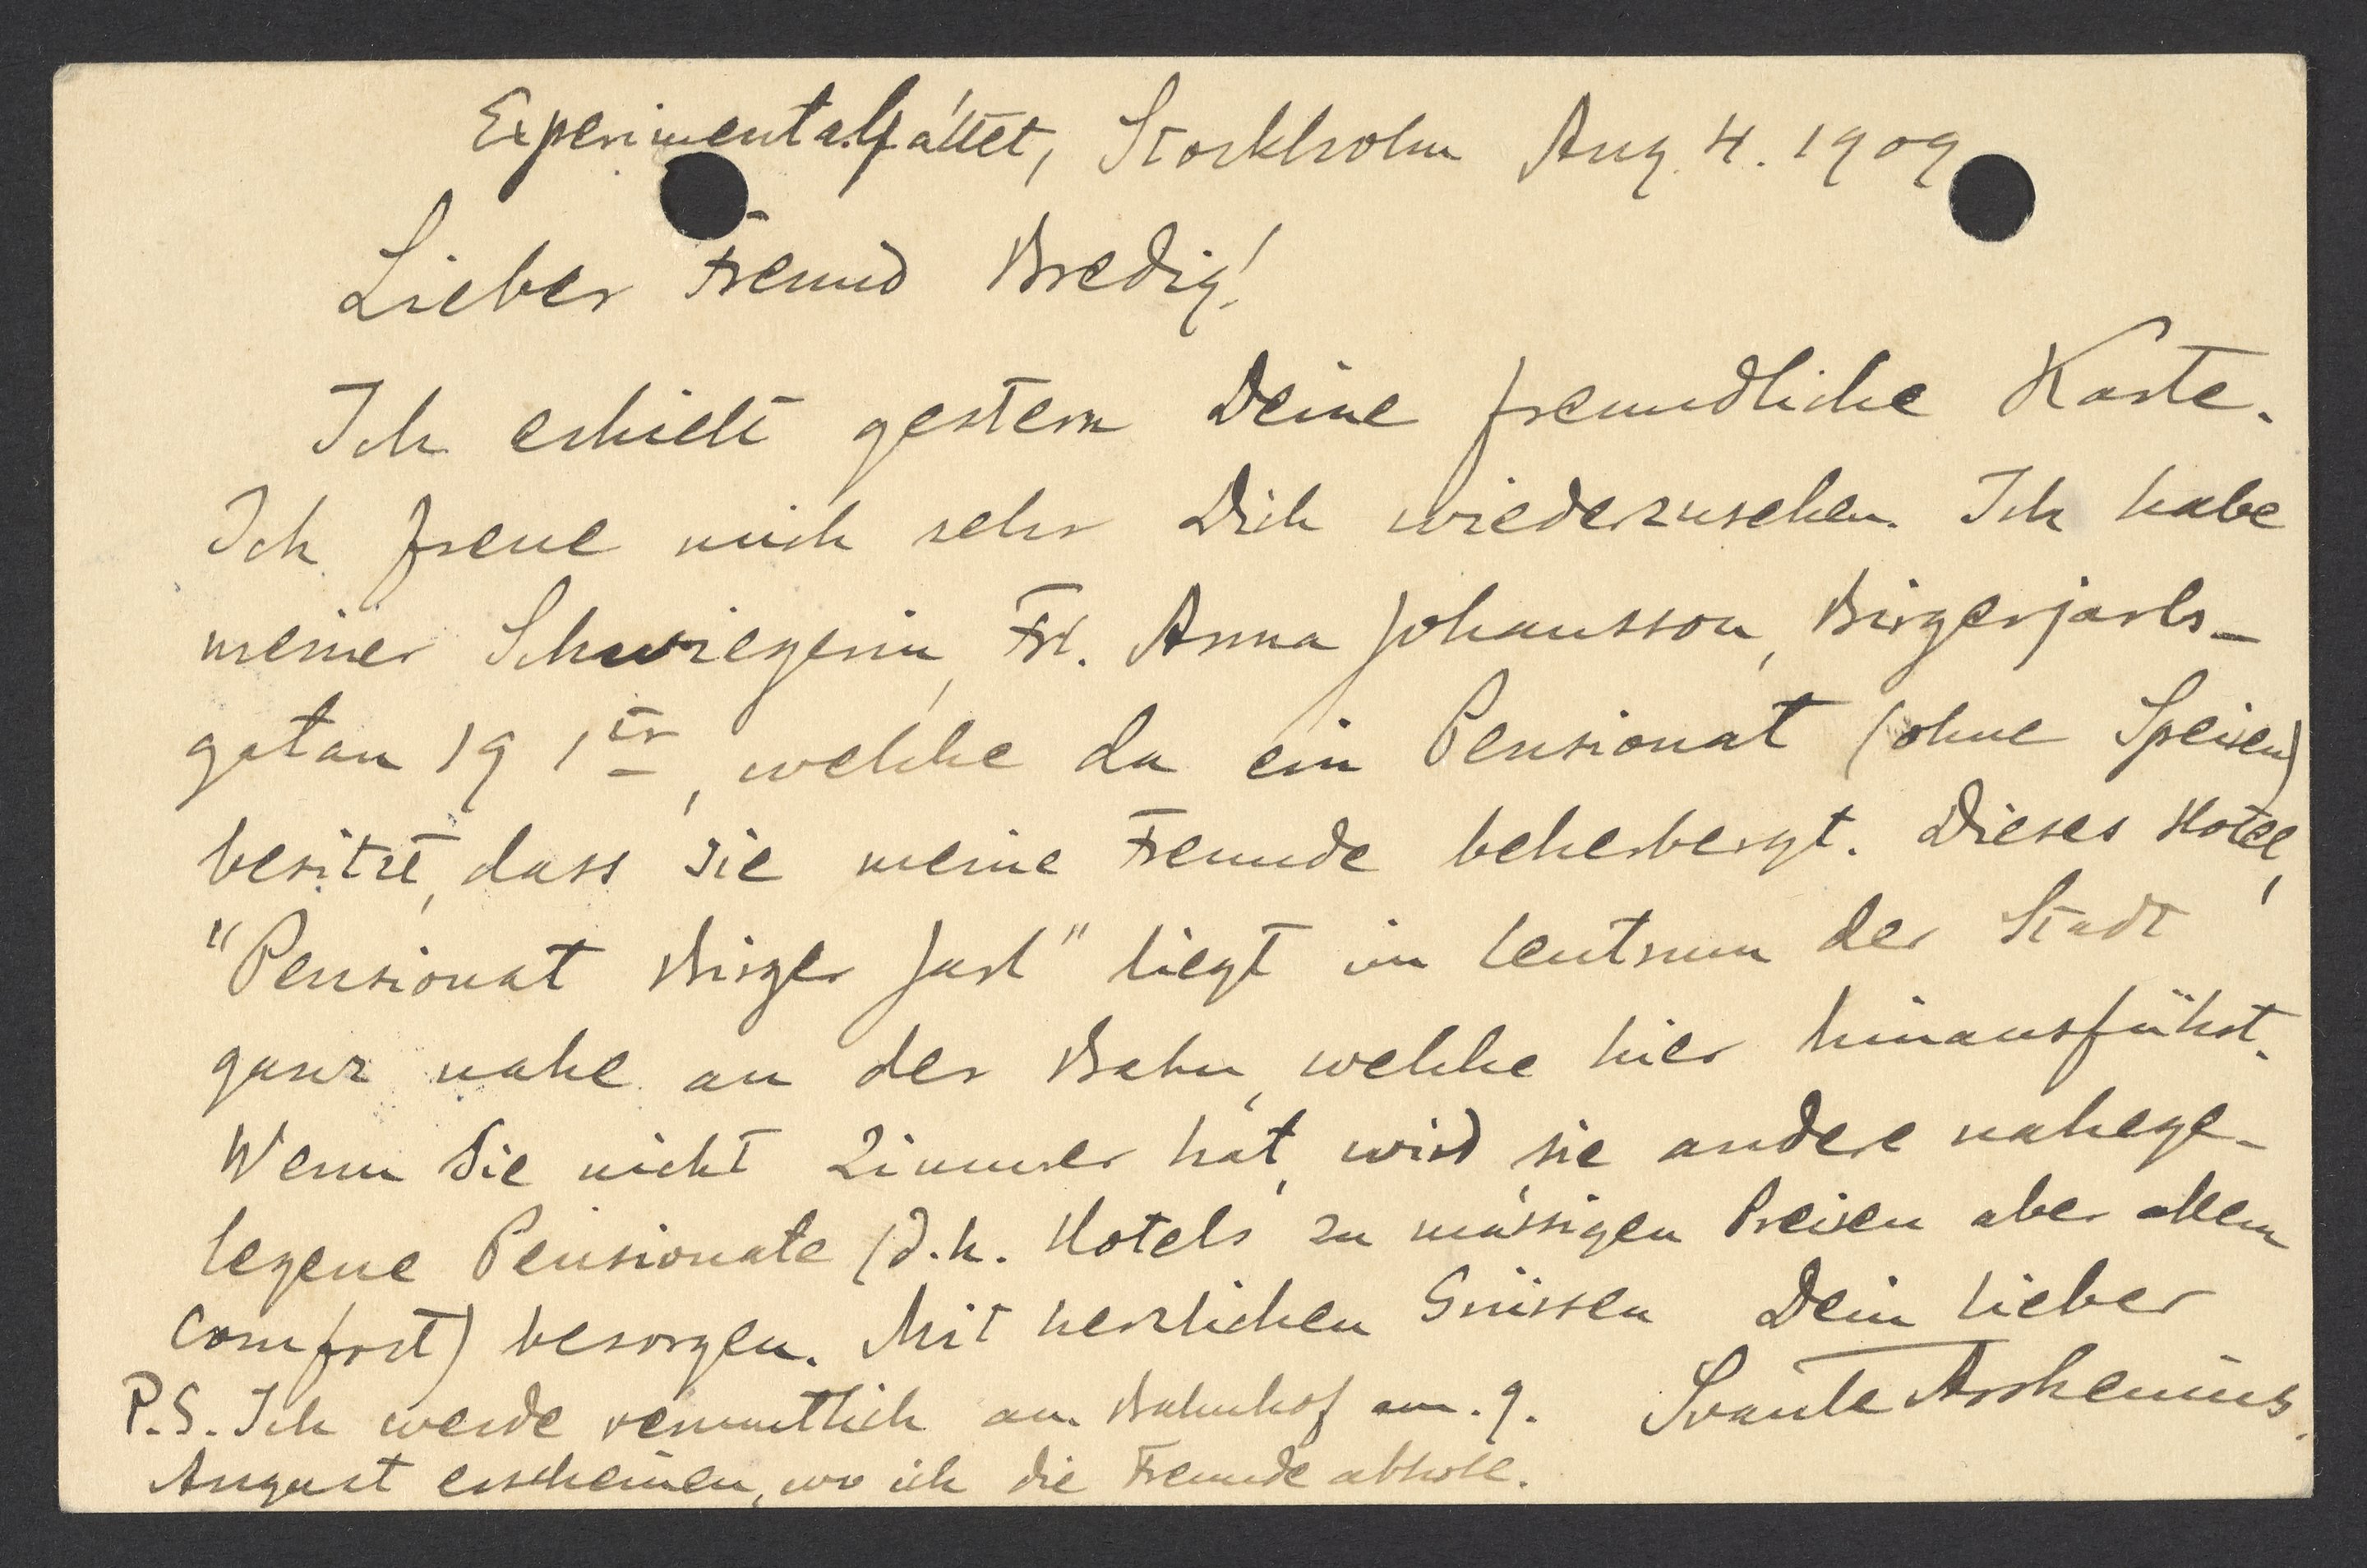 Experimentalfältet, Stockholm Aug. 4. 1909
Lieber Freund Bredig!
Ich erhielt gestern Deine freundliche Karte.
Ich freue mich sehr Dich wiederzusehen. Ich habe
meiner Schwiegerin, Frl. Anna Johansson, Birgerjarls-
gatan 19 1 tr, welche da ein Pensionat (ohne Speisen)
besitzt, dass sie meine Freunde beherbergt. Dieses Hotel,
"Pensionat Birger Jarl" liegt im Centrum der Stadt
ganz nahe an der Bahn, welche hier hinausführt.
Wenn Sie nicht Zimmer hat, wird sie andere nahege-
legene Pensionate (d.h. Hotels zu mässigen Preisen aber allem
Comfort) besorgen. Mit herzlichen Grüssen Dein lieber
Svante Arrhenius.
P.S. Ich werde vermutlich am Bahnhof am 9.
August erscheinen, wo ich die Freunde abhole.